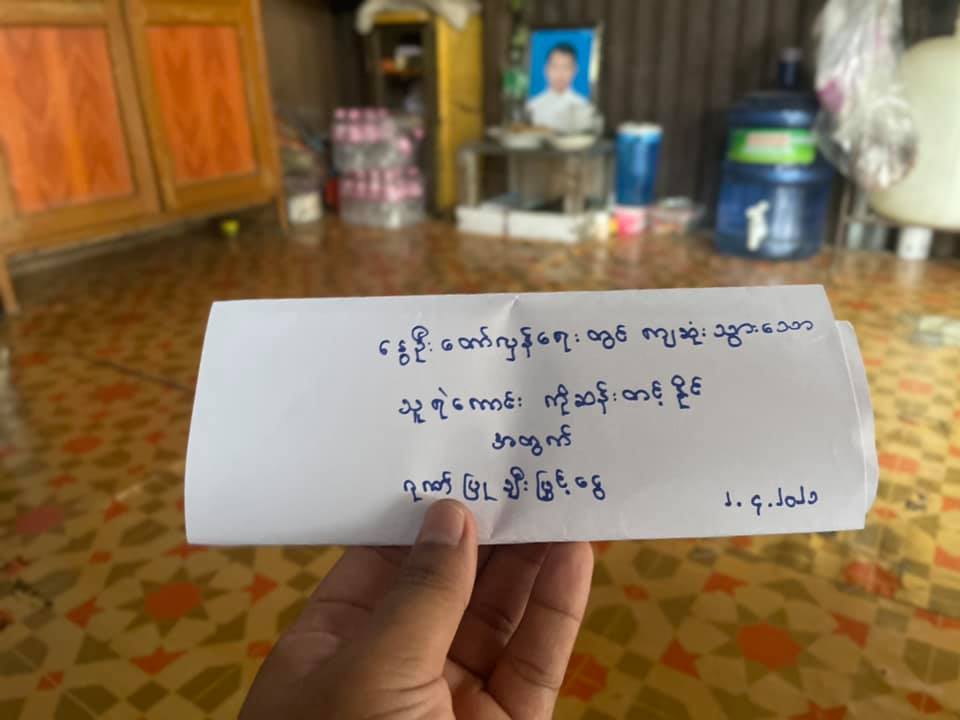 နွေဦး တော်လှန်ရေး တွင် ကျဆုံး သွားသော
သူရဲကောင်း ကိုဆန်းတင့်နိုင်
အတွက်
ဂုဏ်ပြုချီးမြှင့်ငွေ
၂.၄.၂၀၂၁